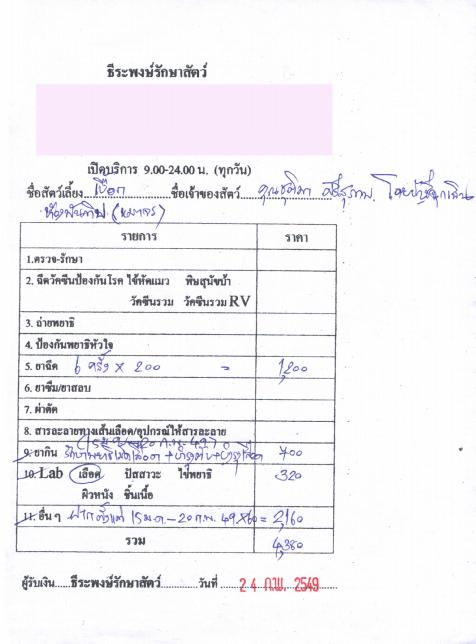 ธีระพงษ์รักษาสัตว์
เปิดบริการ 9.00-24.00 น. (ทุกวัน)
ชื่อสัตว์เลี้ยง เผือก ชื่อเจ้าของสัตว์ คุณชุติมา
รายการ ราคา
1.ตรวจ-รักษา
2. ฉีดวัคซีนป้องกันโรค ไข้หัดแมว พิษสุนัขบ้า
วัคซีนรวม วัคซีนรวม RV
3. ถ่ายพยาธิ
4. ป้องกันพยาธิหัวใจ
5. ยาฉีด 6 ครั้ง x 200 = 1,200
6. ยาซึม/ยาสลบ
7. ผ่าตัด
8. สารละลายทางเส้นเลือด/อุปกรณ์ให้สารละลาย
9. ยากิน 700
10. Lab เลือด ปัสสาวะ ไข่พยาธิ 320
ผิวหนัง ชิ้นเนื้อ
11. อื่นๆ ฝากตั้งแต่ 15 ม.ค. - 20 ก.พ. 49 x 60 = 2,160
รวม 4,380
ผู้รับเงิน......ธีระพงษ์รักษาสัตว์............วันที่ 24 ก.พ. 2549